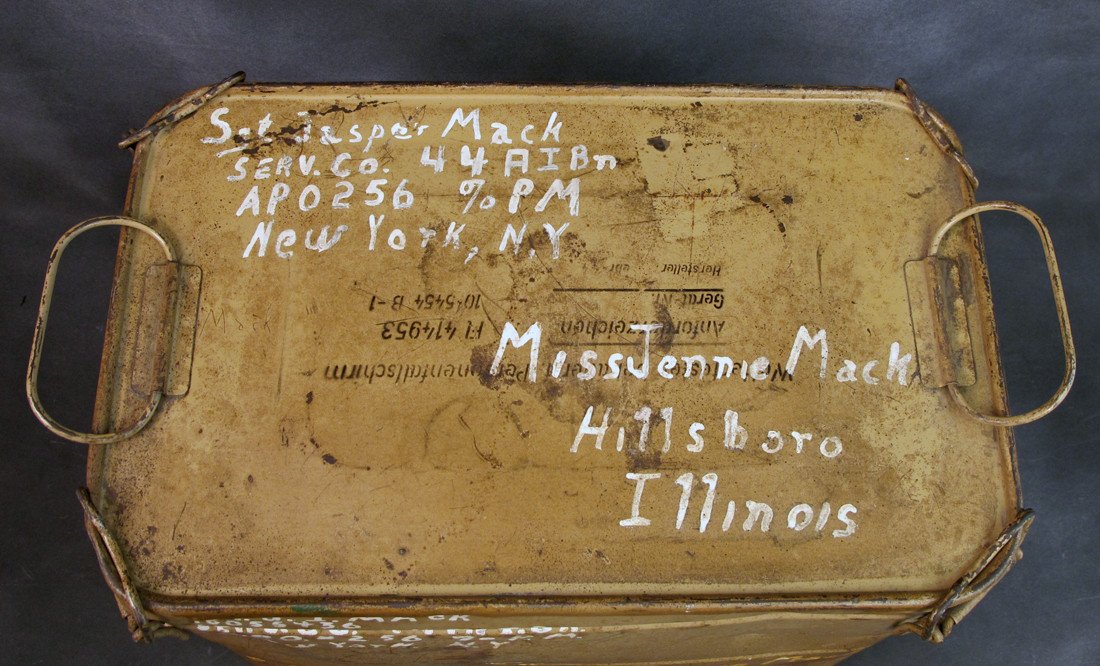 Sgt Jasper Mack
SERV. CO. 44 AIBn
APO 256 % PM
New York, N.Y
Miss Jennie Mack
Hillsboro
Illinois
Personenfallschirm
Anforderzeichen Fl 414953
Gerät-Nr. 10-5454 B-1
Hersteller:
Mack
York N.Y